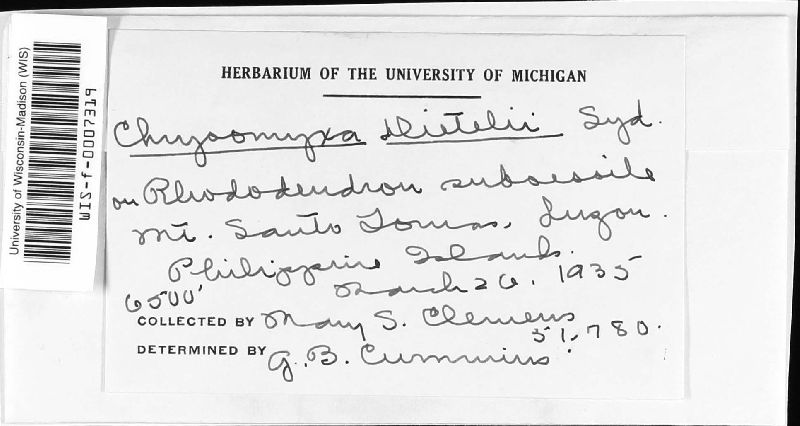 University of Wisconsin-Madison (WIS)
WIS-f-0007319
HERBARIUM OF THE UNIVERSITY OF MICHIGAN
Chrysomyxa Dietelii Syd.
on Rhododendron subsessile
Mt. Santo Tomas, Luzon.
Philippine Islands.
6500' March 26, 1935
COLLECTED BY Mary S. Clemens
51,780.
DETERMINED BY G. B. Cummins